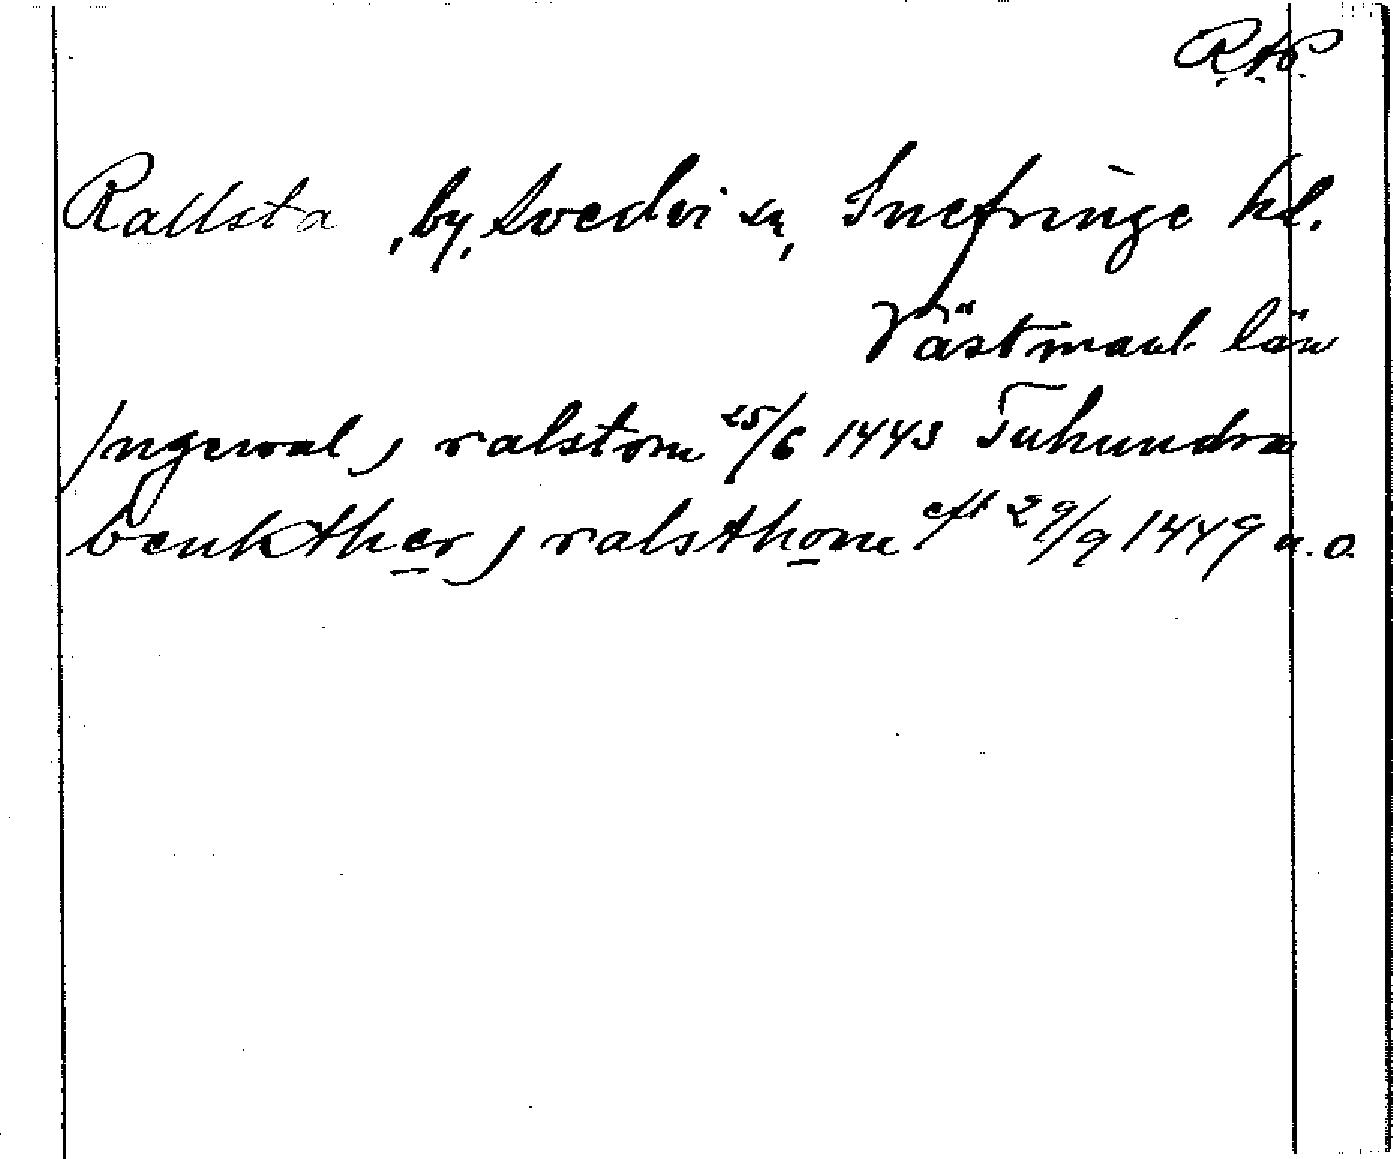 R.A.P.
Rallsta, by, Svedvi sn, Snefringe hd.
Västmanl. län
Jngewal j ralstom 25/6 1443 Tuhundra
benkther j ralsthom eft 29/9 1449 n.o.